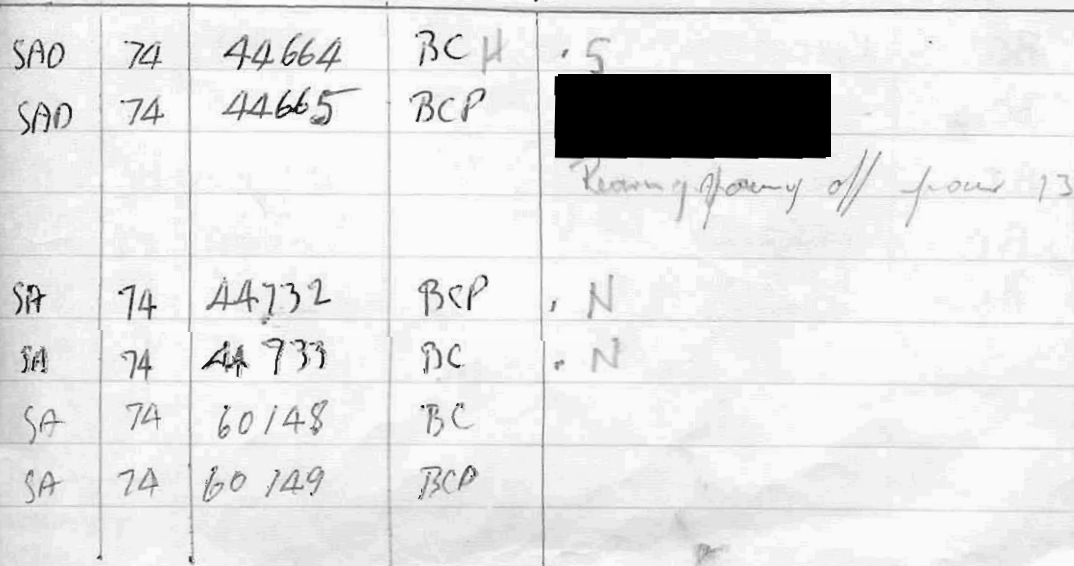 SAD 74 44664 BCH . 5
SAD 74 44665 BCP
off 13
SA 74 44732 BCP . N
SA 74 44733 BC . N
SA 74 60148 BC
SA 74 60149 BCP